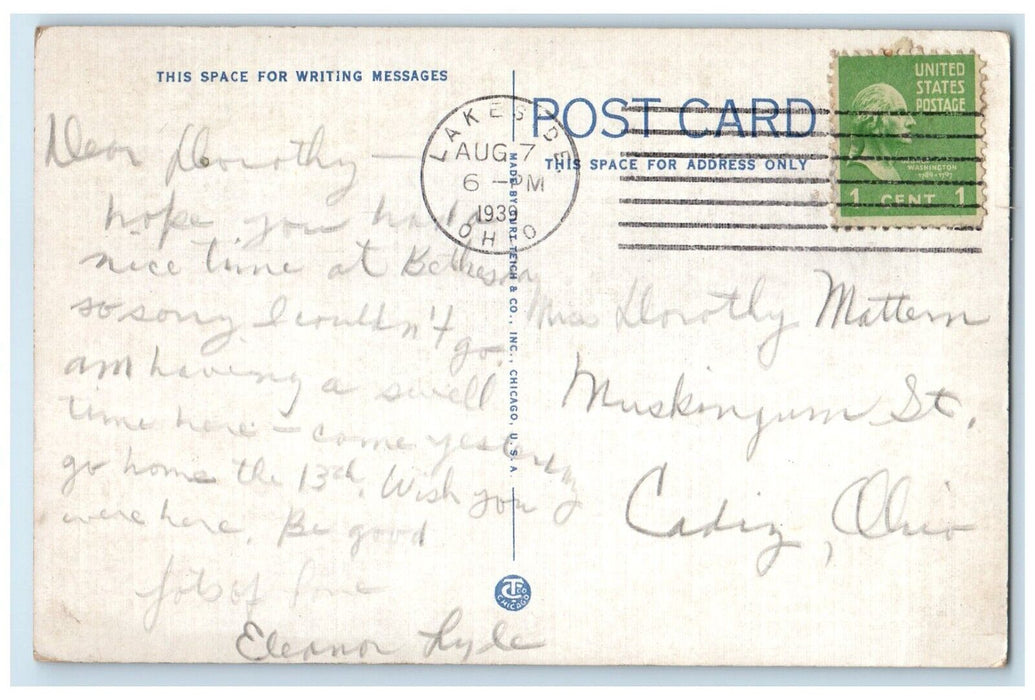 THIS SPACE FOR WRITING MESSAGES
POST CARD
THIS SPACE FOR ADDRESS ONLY
UNITED
STATES
POSTAGE
WASHINGTON
1789-1797
1 CENT 1
LAKESIDE.
AUG 7
6 -PM
1939
OHIO
MADE BY CURT TEICH & CO., INC., CHICAGO, U.S.A
Dear Dorothy -
hope you had a
nice time at Bethesda
so sorry I couldn't go.
am having a swell
time here - come yesterday
go home the 13th. Wish you
were here. Be good
lots of love
Eleanor Lyle
Miss Dorothy Mattern
Muskingum St.
Cadiz, Ohio
CHICAGO